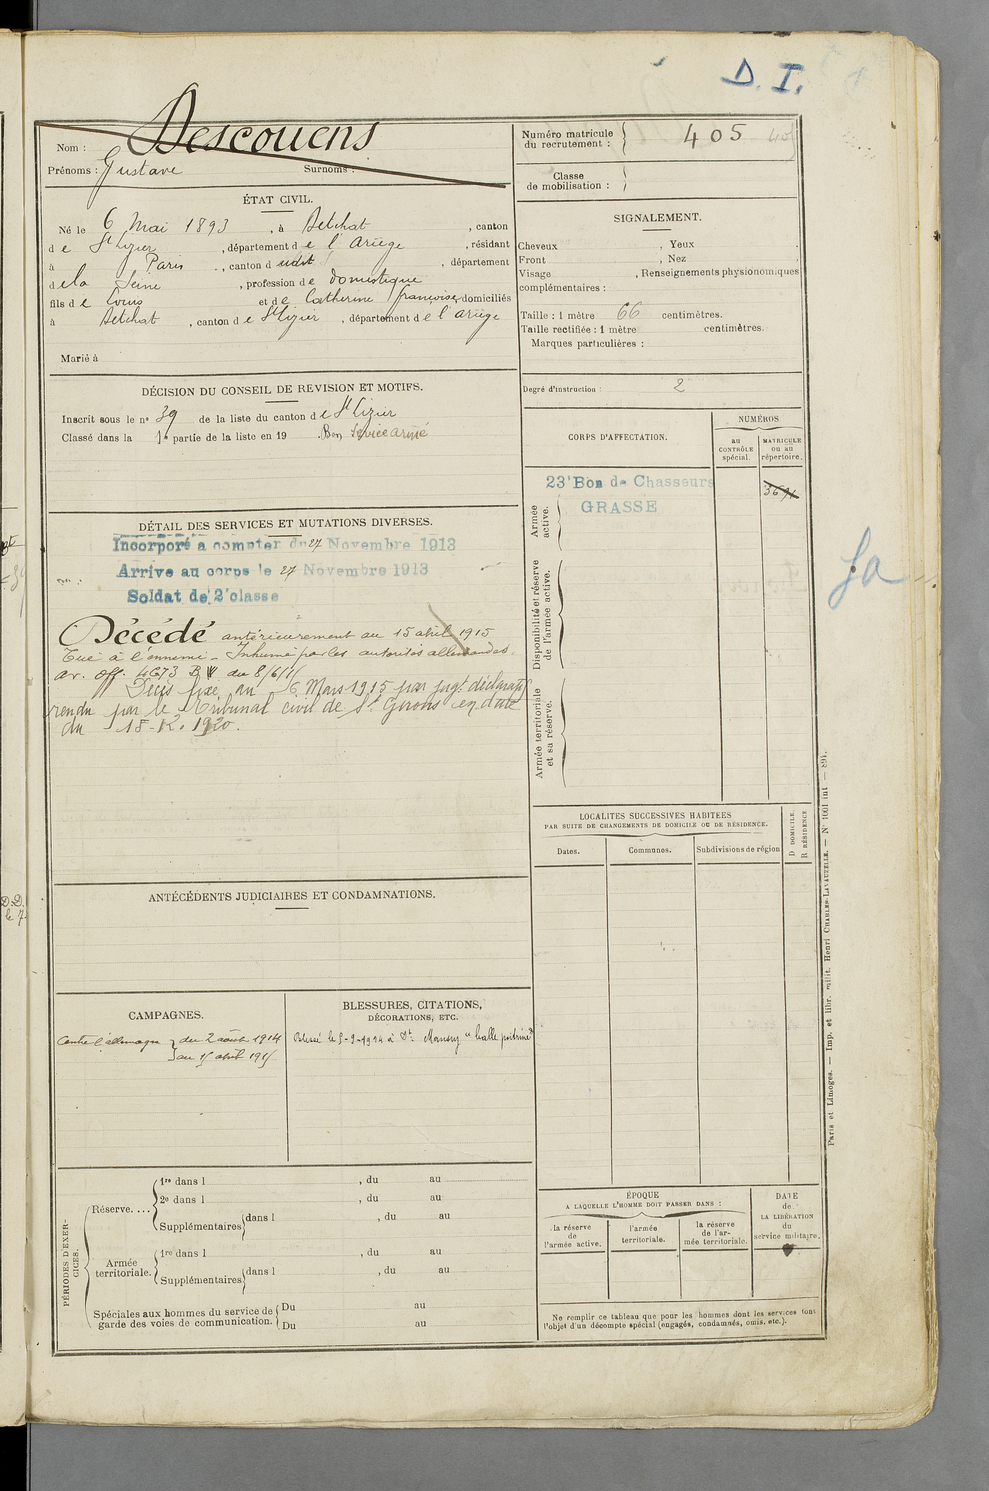 D. I.
Nom : Descouens
Prénoms : Gustave Surnoms :
Numéro matricule du recrutement : 405
Classe de mobilisation :
ÉTAT CIVIL.
Né le 6 Mai 1893, à Betchat, canton
de St Lizier, département de l'Ariège, résidant
à Paris, canton dudit, département
de la Seine, profession de domestique
fils de Louis et de Catherine Françoise, domiciliés
à Betchat, canton de St Lizier, département de l'Ariège
Marié à
SIGNALEMENT.
Cheveux , Yeux .
Front , Nez .
Visage , Renseignements physionomiques
complémentaires :
Taille : 1 mètre 66 centimètres.
Taille rectifiée : 1 mètre centimètres.
Marques particulières :
Degré d'instruction : 2
DÉCISION DU CONSEIL DE REVISION ET MOTIFS.
Inscrit sous le nº 39 de la liste du canton de St Lizier
Classé dans la 1e partie de la liste en 19 . Bon Service armé
CORPS D'AFFECTATION.
NUMÉROS
au CONTRÔLE spécial.
MATRICULE ou au répertoire.
Armée active.
23e Bon de Chasseurs
GRASSE
Disponibilité et réserve de l'armée active.
Armée territoriale et sa réserve.
DÉTAIL DES SERVICES ET MUTATIONS DIVERSES.
Incorporé à compter du 27 Novembre 1913
Arrivé au corps le 27 Novembre 1913
Soldat de 2e classe
Décédé antérieurement au 15 abril 1915
Tué à l'ennemi - Inhumé par les autorités allemandes.
av. off. 4673 B du 8/6/15
Décès fixé au 6 Mars 1915 par jugt déclaratif
rendu par le Tribunal civil de St Girons en date
du 18-12-1920.
LOCALITÉS SUCCESSIVES HABITÉES
PAR SUITE DE CHANGEMENTS DE DOMICILE OU DE RÉSIDENCE.
Dates.
Communes.
Subdivisions de région
D DOMICILE.
R RÉSIDENCE
ANTÉCÉDENTS JUDICIAIRES ET CONDAMNATIONS.
CAMPAGNES.
Contre l'allemagne du 2 août 1914
au 15 abril 1915
BLESSURES, CITATIONS,
DÉCORATIONS, ETC.
Blessé le 5-9-1914 à St Mansuy "balle poitrine"
PÉRIODES D'EXERCICES.
Réserve....
1re dans l , du au
2e dans l , du au
Supplémentaires dans l , du au
Armée territoriale.
1re dans l , du au
Supplémentaires dans l , du au
Spéciales aux hommes du service de garde des voies de communication.
Du au
Du au
ÉPOQUE
A LAQUELLE L'HOMME DOIT PASSER DANS :
la réserve de l'armée active.
l'armée territoriale.
la réserve de l'armée territoriale.
DATE de LA LIBÉRATION du service militaire.
Ne remplir ce tableau que pour les hommes dont les services font
l'objet d'un décompte spécial (engagés, condamnés, omis, etc.).
Paris et Limoges. — Imp. et libr. milit. Henri CHARLES-LAVAUZELLE. — Nº 1001 int — 894.